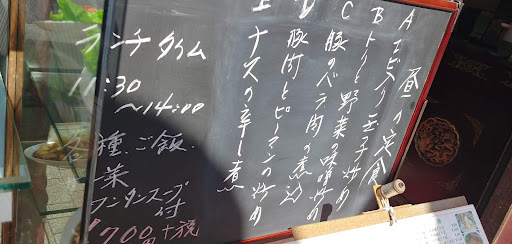 昼の定食
A エビ入り玉子炒め
B トリと野菜の味噌炒め
C 豚のバラ肉の煮込
D 豚肉とピーマンの炒め
E ナスの辛し煮
ランチタイム
11:30
～14:00
各種、ご飯.
菜
ワンタンスープ付
￥700円+税